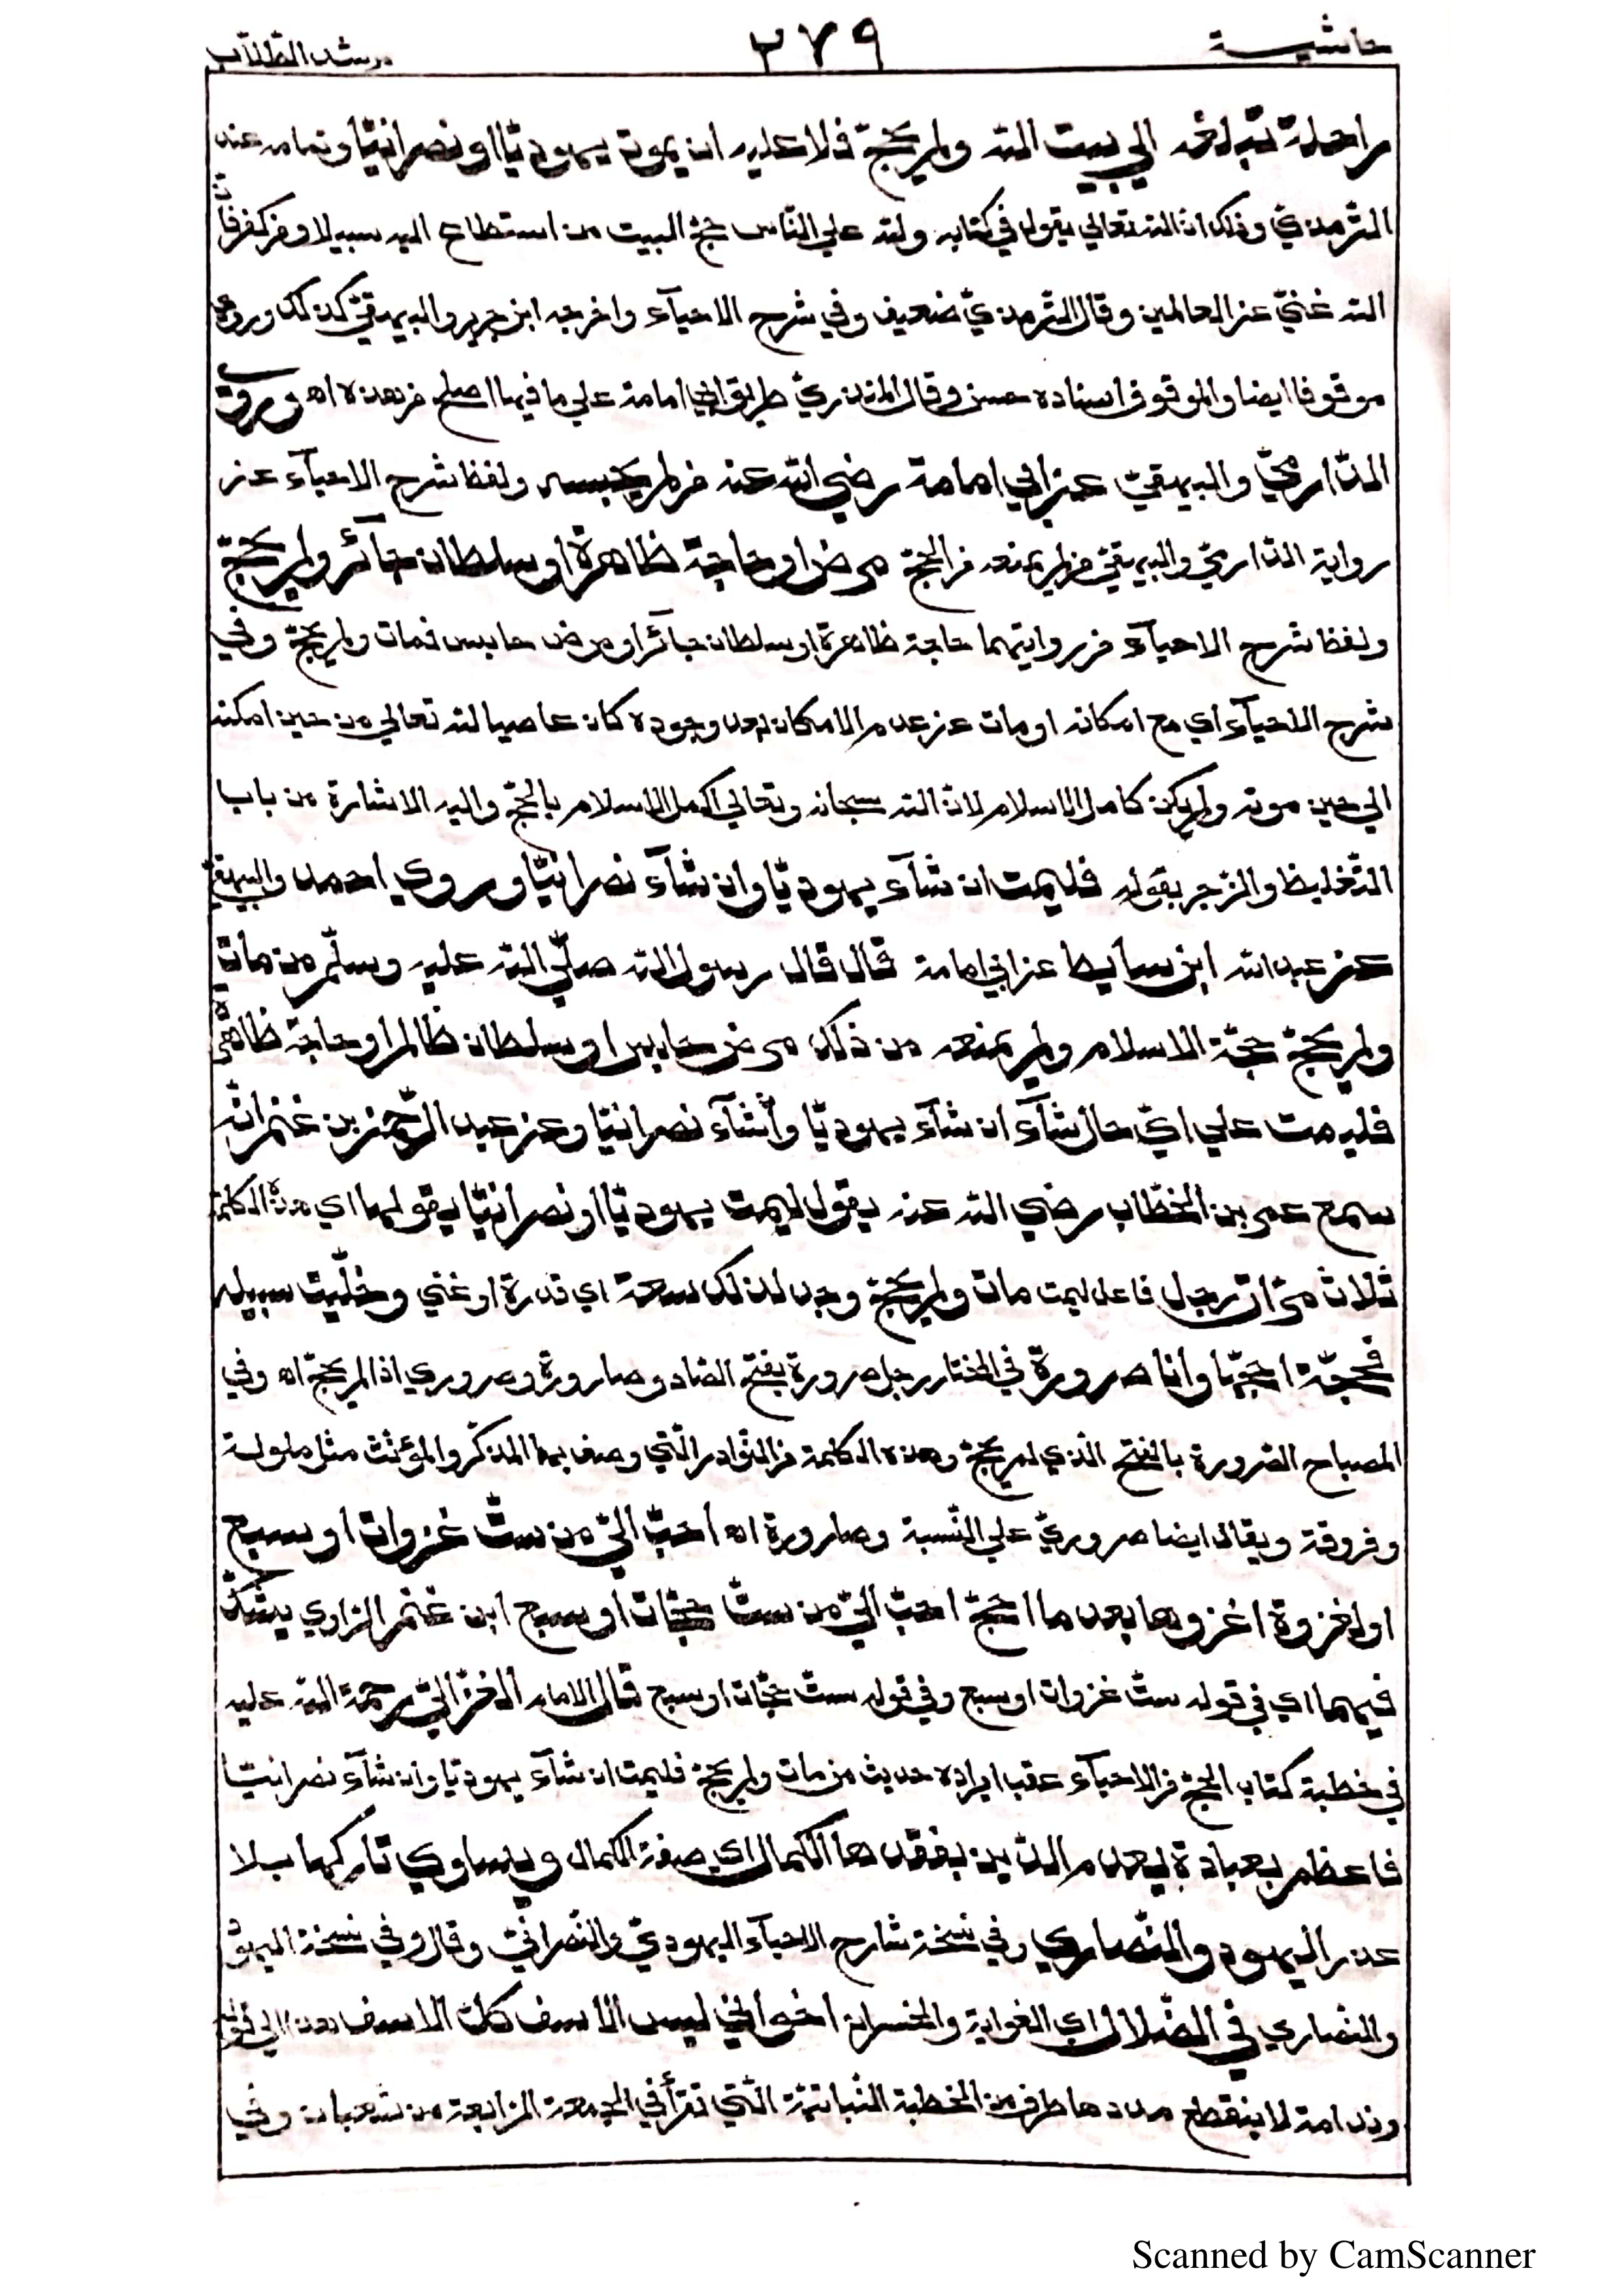 حاشية ٢٧٩ مرشد الطّلّاب
راحلة تبلغه الي بيت الله ولم يحجّ فلا عليه ان يموت يهوديّا او نصرانيّا وتمامه عند
التّرمذيّ وذلك انّ الله تعالي يقول في كتابه ولله علي النّاس حجّ البيت من استطاع اليه سبيلا ومن كفر فانّ
الله غنيّ عن العالمين وقال التّرمذيّ ضعيف وفي شرح الاحيآء واخرجه ابن جرير والبيهقيّ كذلك وروي
موقوفا ايضا والموقوف اسناده حسن وقال المنذريّ طريق ابي امامة علي ما فيها اصلح من هذه اه وروي
الدّارميّ والبيهقيّ عن ابي امامة رضي الله عنه من لم يحبسه ولفظ شرح الاحيآء عن
رواية الدّارميّ والبيهقيّ من لم يمنعه من الحجّ مرض او حاجة ظاهرة او سلطان جآئر ولم يحجّ
ولفظ شرح الاحيآء من روايتهما حاجة ظاهرة او سلطان جآئر او مرض حابس فمات ولم يحجّ وفي
شرح الاحيآء اي مع امكانه او مات عن عدم الامكان بعد وجوده كان عاصيا لله تعالي من حين امكنه
الي حين موته ولم يكن كامل الاسلام لانّ الله سبحانه وتعالي اكمل الاسلام بالحجّ واليه الاشارة من باب
التّغليظ والزّجر بقوله فليمت ان شآء يهوديّا وان شآء نصرانيّا وروي احمد والبيهقيّ
عن عبد الله ابن سابط عن ابي امامة قال قال رسول الله صلّي الله عليه وسلّم من مات
ولم يحجّ حجّة الاسلام ولم يمنعه من ذلك مرض حابس او سلطان ظالم او حاجة ظاهرة
فليمت علي ايّ حال شآء ان شآء يهوديّا وان شآء نصرانيّا وعن عبد الرّحمن بن غنم انّه
سمع عمر بن الخطّاب رضي الله عنه يقول ليمت يهوديّا او نصرانيّا يقولها اي هذه الكلمة
ثلاث مرّات رجل فاعل ليمت مات ولم يحجّ وجد لذلك سعة اي قدرة او غني وخلّيت سبيله
فحجّة احجّها وانا صرورة في المختار رجل صرورة بفتح الصّاد وصارورة وصروري اذا لم يحجّ اه وفي
المصباح الصّرورة بالفتح الّذي لم يحجّ وهذه الكلمة من النّوادر الّتي وصف بها المذكّر والمؤنّث مثل ملولة
وفروقة ويقال ايضا صروريّ علي النّسبة وصارورة اه احبّ اليّ من ستّ غزوات او سبع
او لغزوة اغزوها بعد ما احجّ احبّ اليّ من ستّ حجّات او سبع ابن غنم الرّاوي يشكّ
فيهما اي في قوله ستّ غزوات او سبع وفي قوله ستّ حجّات او سبع قال الامام الغزاليّ رحمة الله عليه
في خطبة كتاب الحجّ من الاحيآء عقب ايراده حديث من مات ولم يحجّ فليمت ان شآء يهوديّا وان شآء نصرانيّا
فاعظم بعبادة يعدم الدّين بفقدها الكمال اي صفة الكمال ويساوي تاركها بلا
عذر اليهود والنّصاري وفي نسخة شارح الاحيآء اليهوديّ والنّصرانيّ وقال وفي نسخة اليهود
والنّصاري في الضّلال اي الغواية والخسران اخواني ليس الاسف كلّ الاسف
وندامة لا ينقطع مددها طرف من الخطبة النّباتيّة الّتي تقرأ في الجمعة الرّابعة من شعبان وفي
Scanned by CamScanner